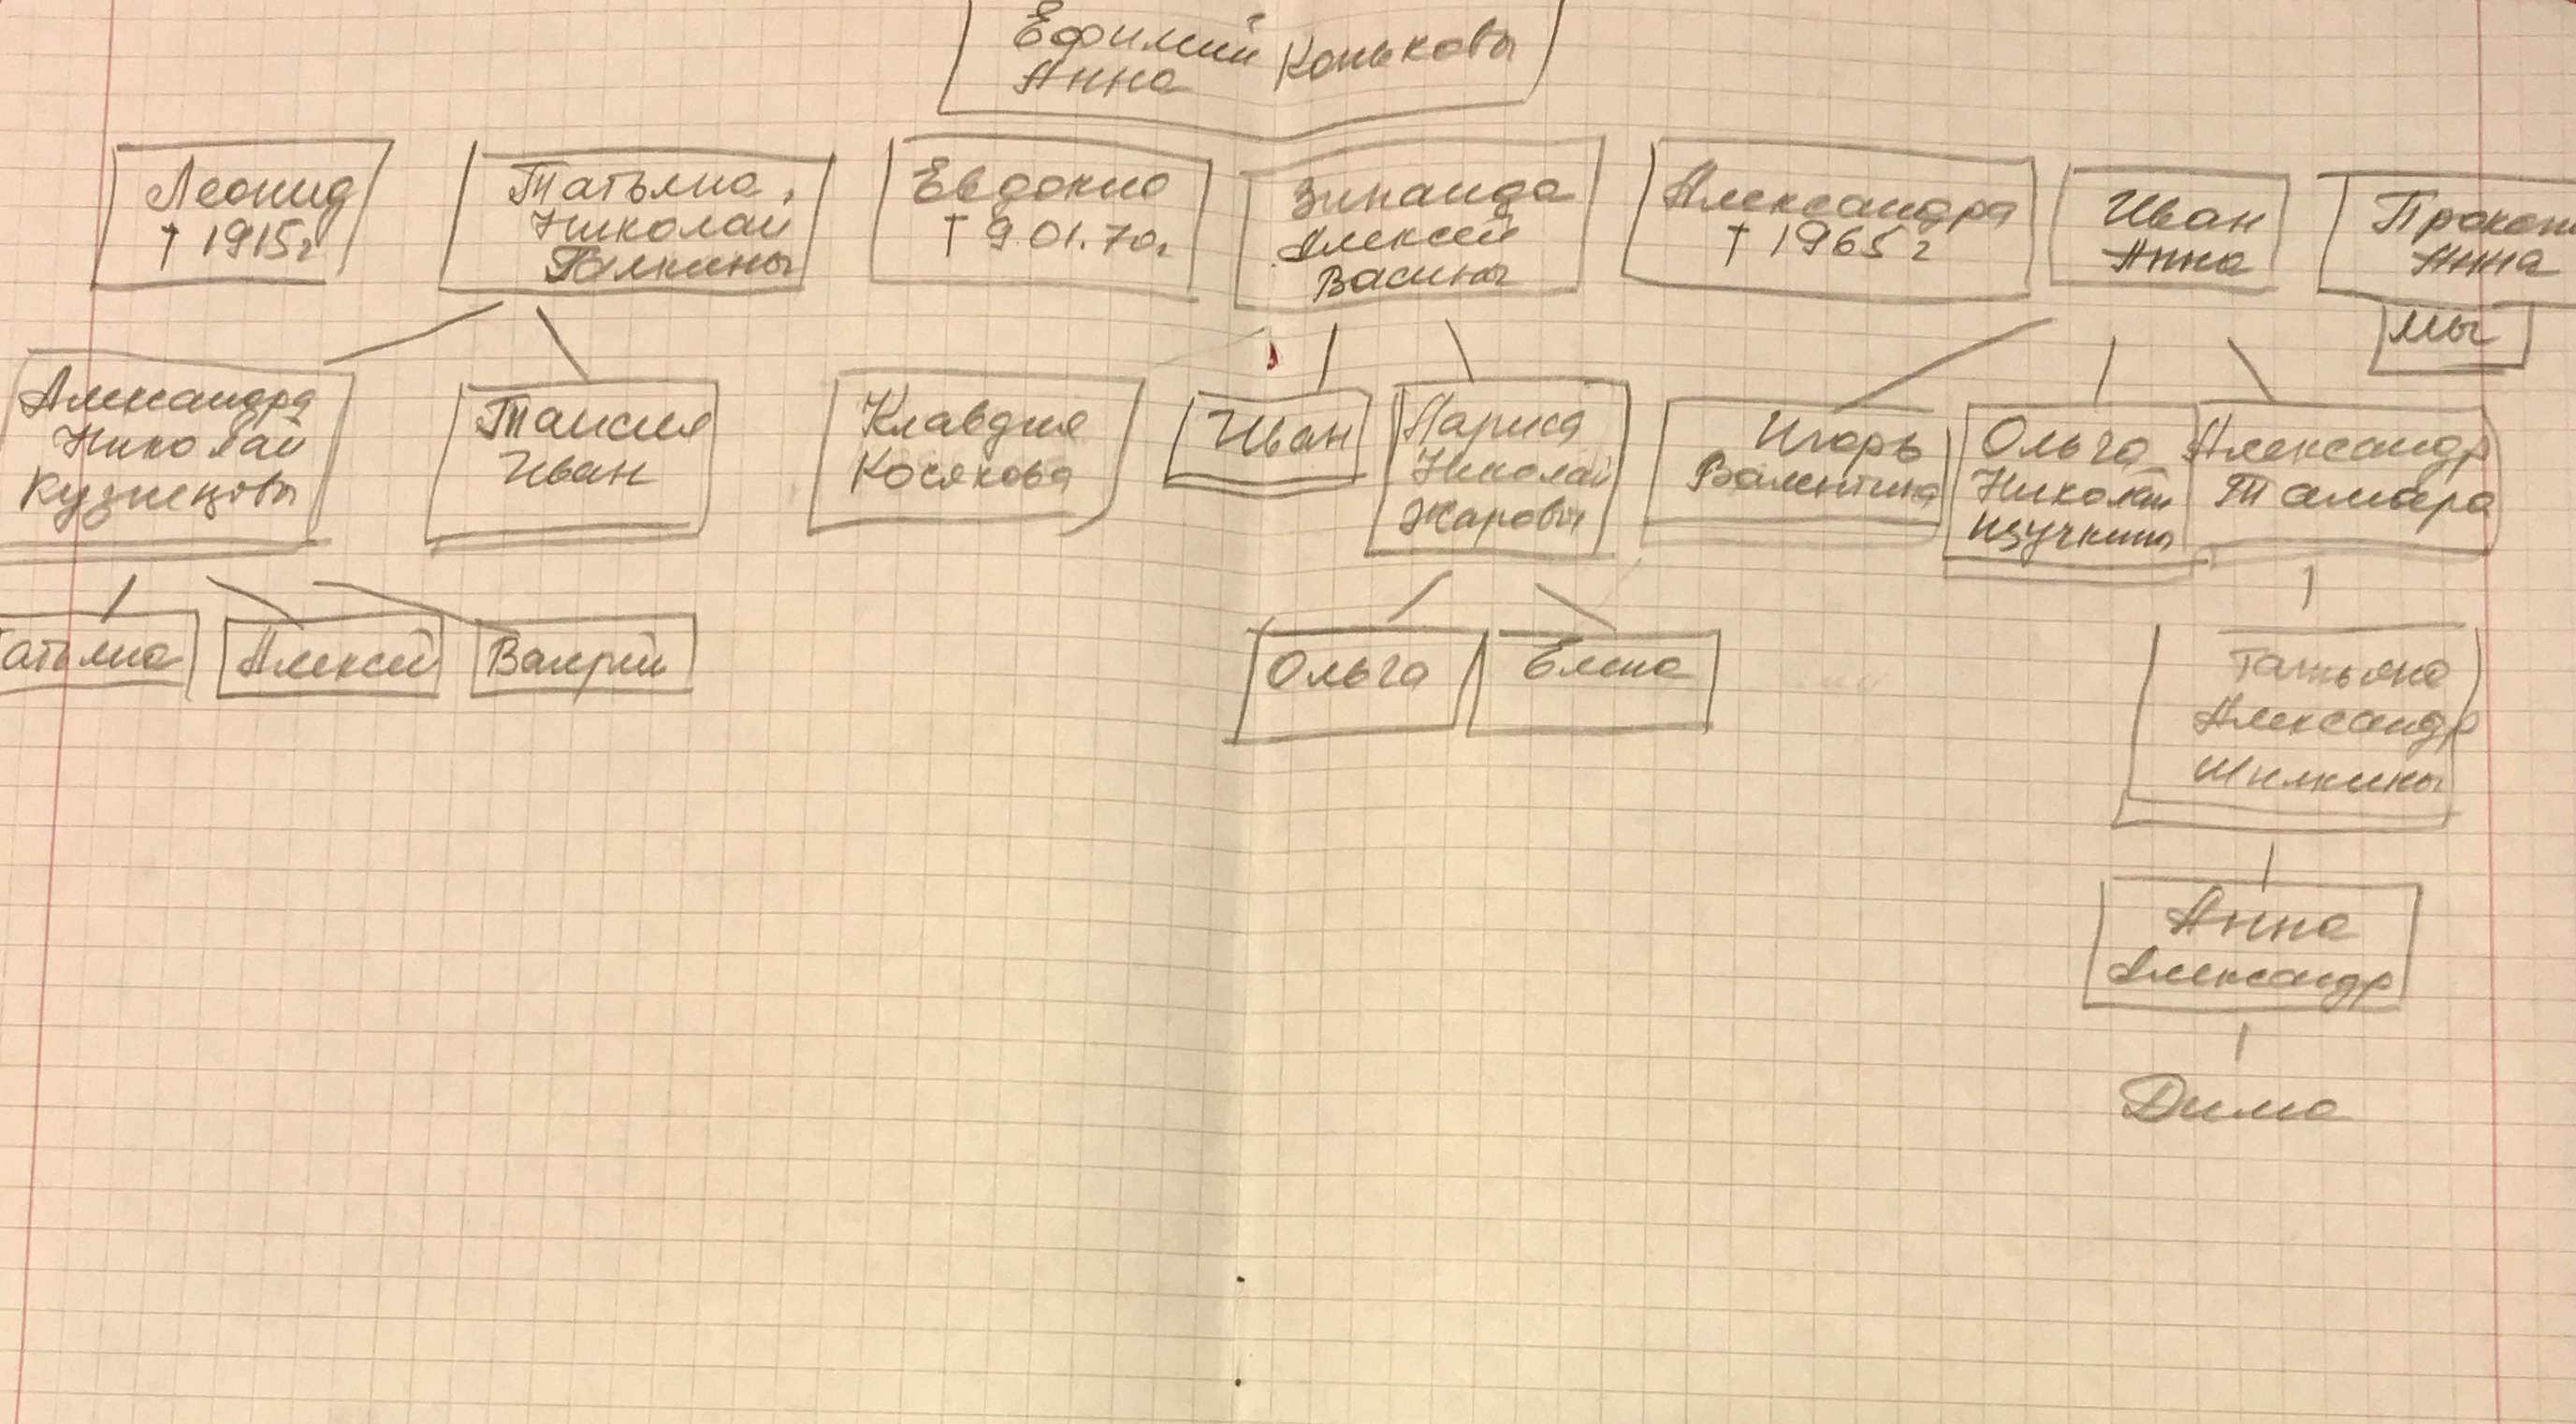 Ефимий
Анна Коньковы
Леонид
† 1915г
Татьяна,
Николай
Галкины
Евдокия
† 9.01.70г
Зинаида
Алексей
Васины
Александра
† 1965 г
Иван
Анна
Прокоп
Анна
мы
Александра
Николай
Кузнецовы
Таисия
Иван
Клавдия
Косякова
Иван
Лариса
Николай
Жаровы
Игорь
Валентина
Ольга
Николай
Щучкины
Александр
Тамара
атьяна
Алексей
Валерий
Ольга
Елена
Татьяна
Александр
Шилкины
Анна
Александр
Дима